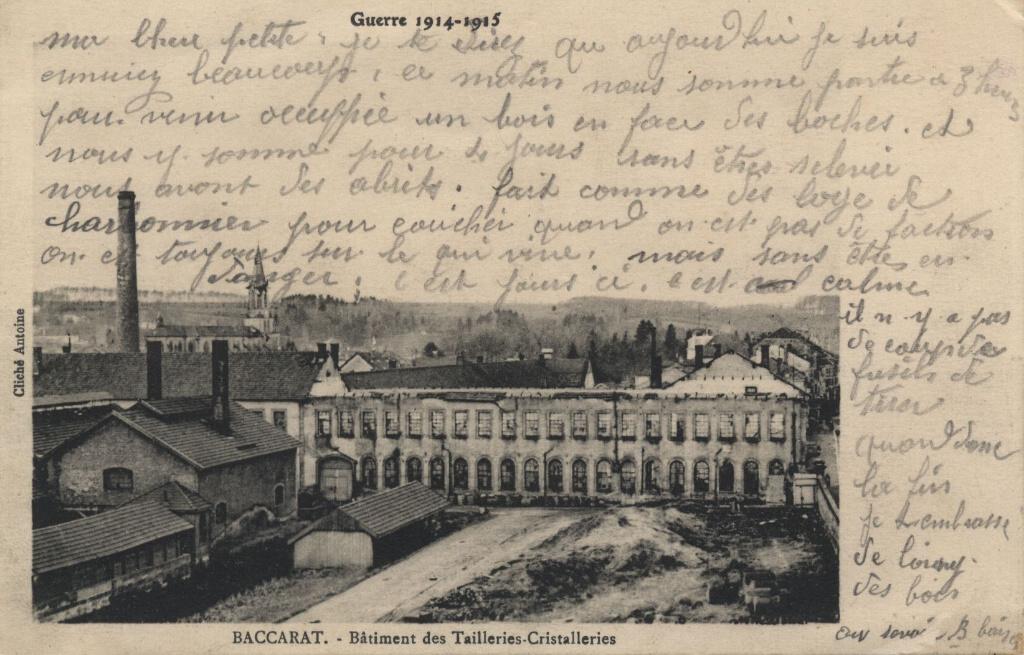 Guerre 1914-1915
ma chere petite, je te direz qu aujourd hui je suis
ennuiez beaucoup, ce matin nous somme partie a 3 heures
pour venir occuppée un bois en face des boches. et
nous y somme pour 4 jours sans êtres relever
nous avont des abrits. fait comme des loge de
charbonnier pour coucher quand on est pas de faction
on est toujours sur le qui vive, mais sans être en
danger, c est jours ci. c est calme
il n y a pas
de coups de
fusils de
tirer
quand donc
la fin
je t embrasse
de loin
des bois
au revoir
Cliché Antoine
BACCARAT. - Bâtiment des Tailleries-Cristalleries